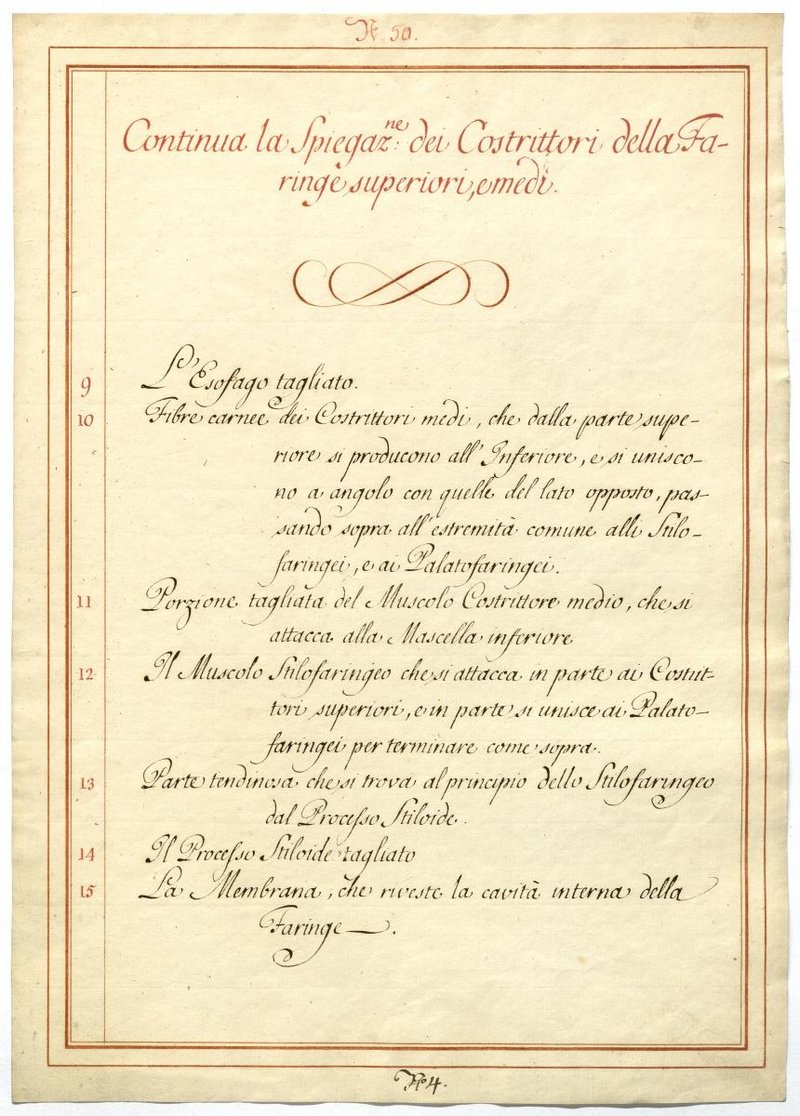 N. 50.
Continua la Spiegaz.ne dei Costrittori della Fa-
ringe superiori, e medi.
9 L'Esofago tagliato.
10 Fibre carnee dei Costrittori medi, che dalla parte supe-
riore si producono all'Inferiore, e si unisco-
no a angolo con quelle del lato opposto, pas-
sando sopra all'estremità comune alli Stilo-
faringei, e ai Palatofaringei.
11 Porzione tagliata del Muscolo Costrittore medio, che si
attacca alla Mascella inferiore
12 Il Muscolo Stilofaringeo che si attacca in parte ai Costrit-
tori superiori, e in parte si unisce ai Palato-
faringei per terminare come sopra.
13 Parte tendinosa che si trova al principio dello Stilofaringeo
dal Processo Stiloide.
14 Il Processo Stiloide tagliato
15 La Membrana, che riveste la cavità interna della
Faringe.
No 4.